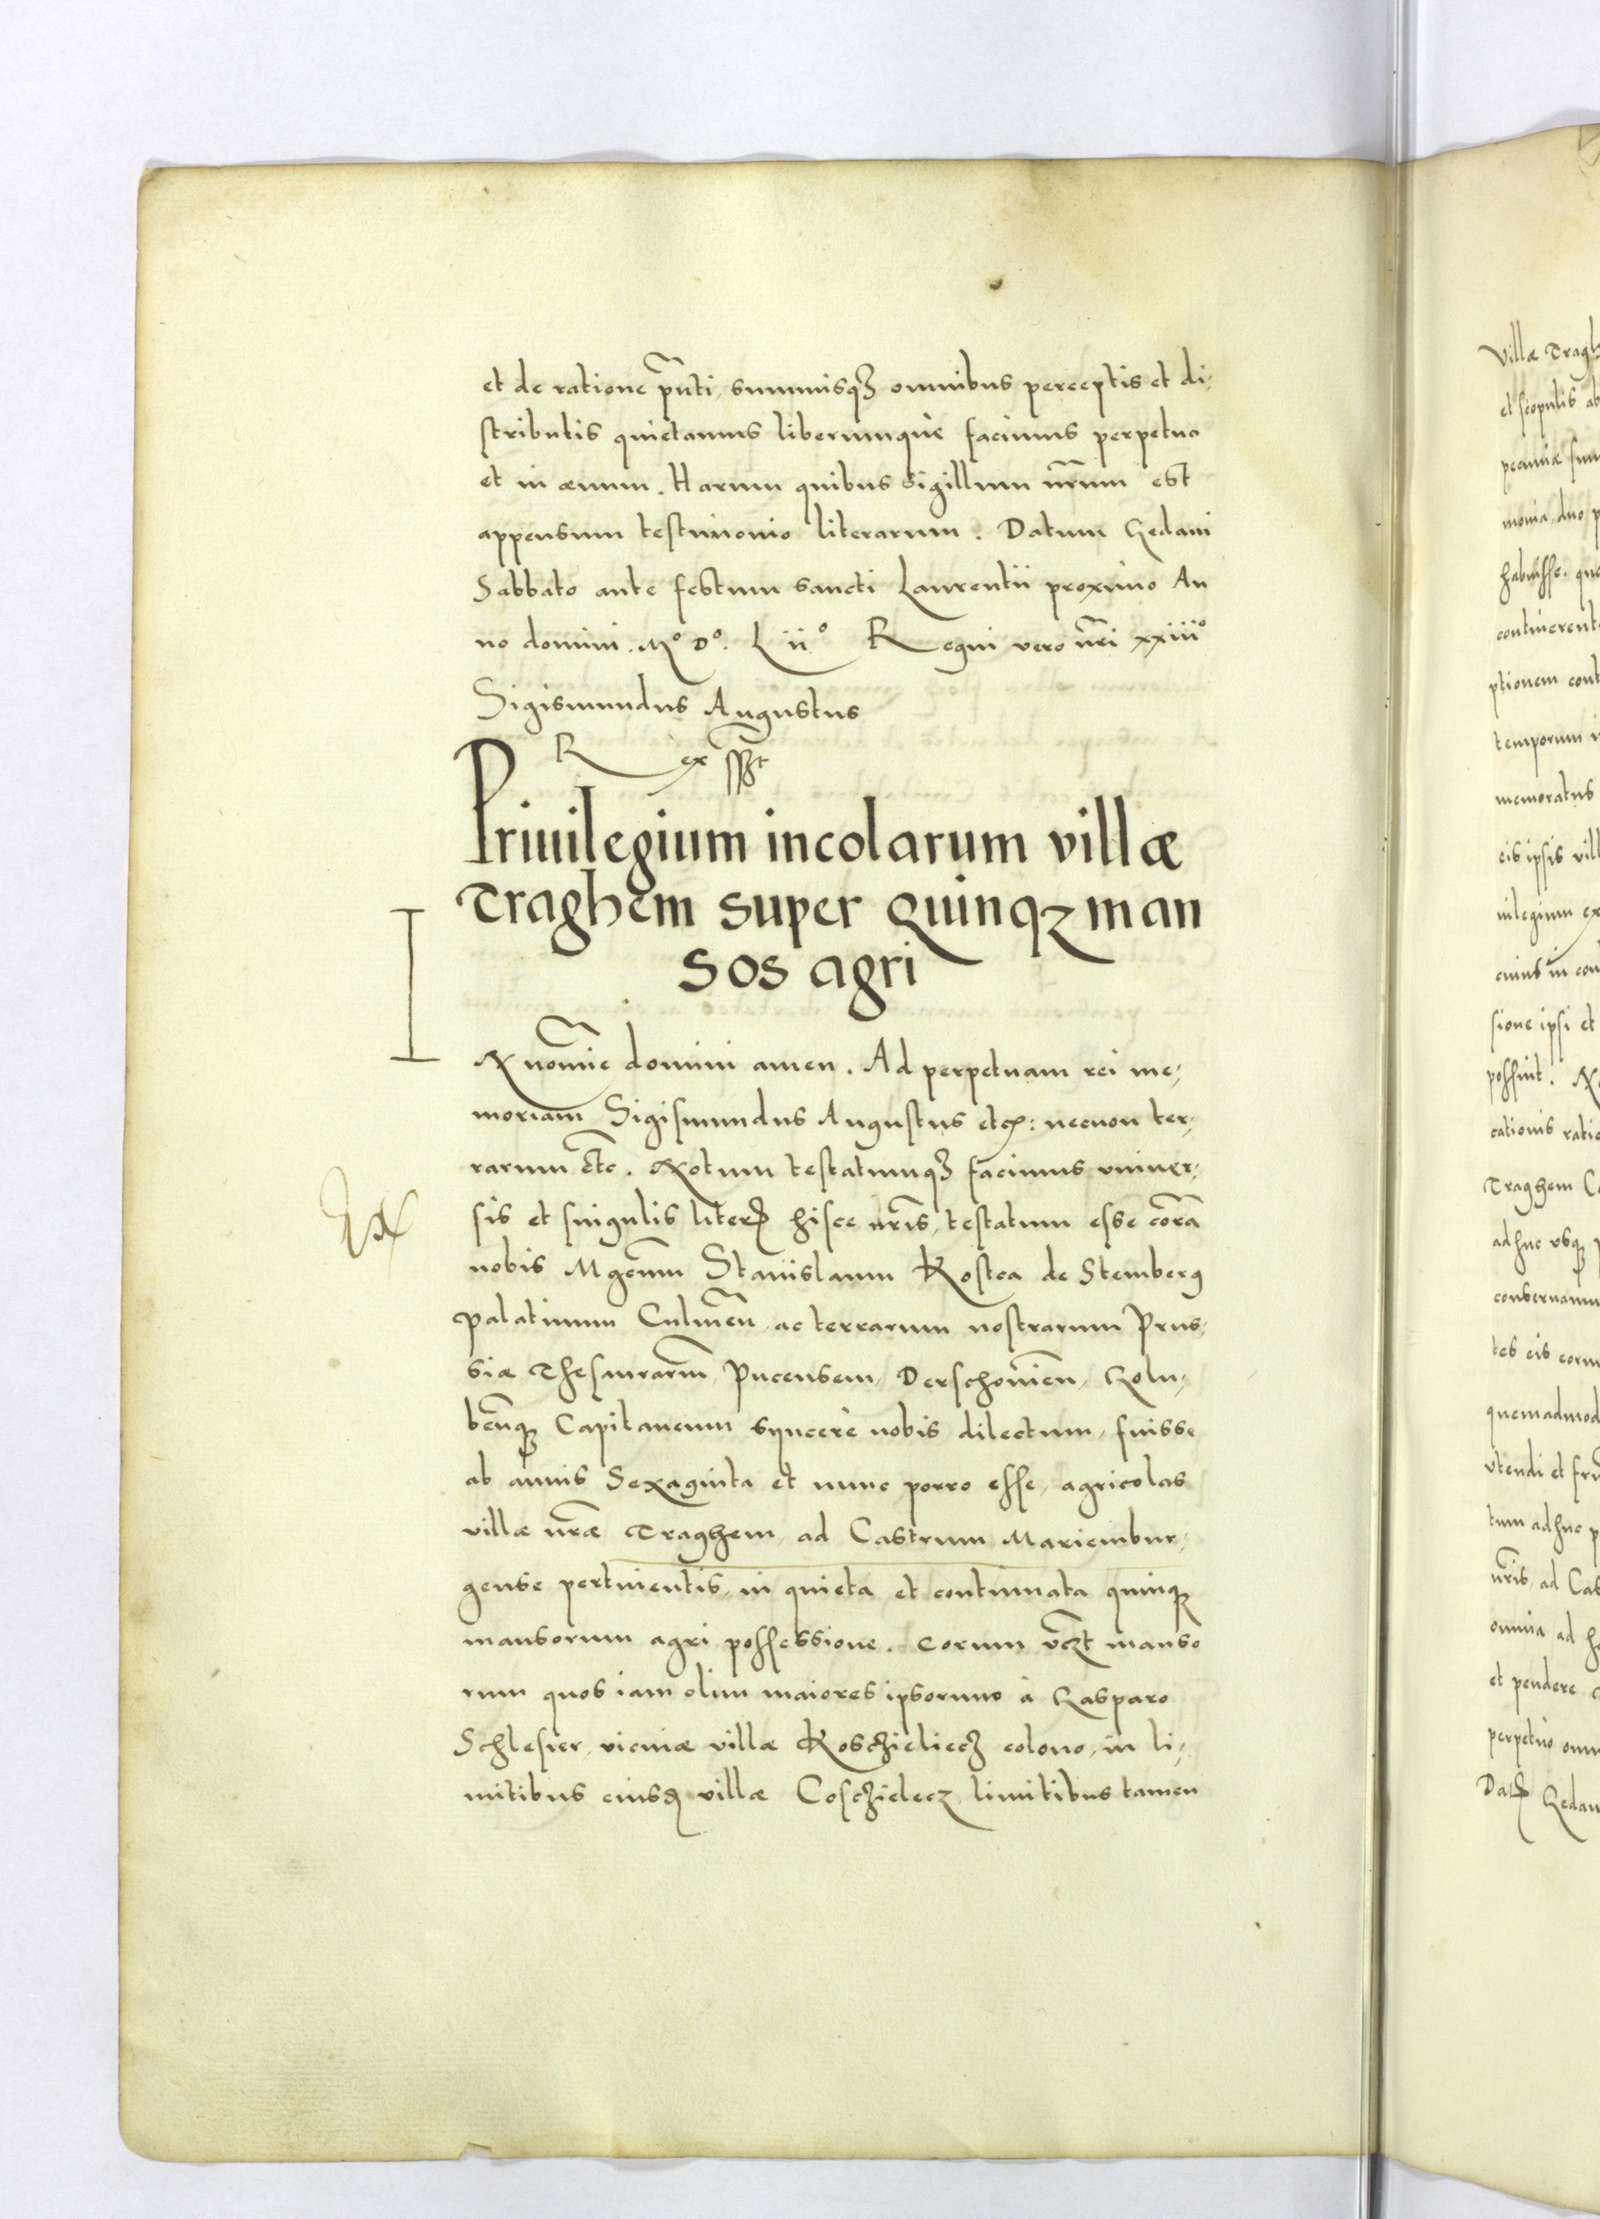 et de ratione pñti, summisqꝫ omnibus perceptis et di-
stributis quietamus liberumquè facimus perpetuo
et in æuum. Harum quibus sigillum nr̃um est
appensum testimonio literarum. Datum Gedani
Sabbato ante festum sancti Laurentii proximo An
no domini. Mº Dº. Liiº Regni vero nr̃i xxiiiº
Sigismundus Augustus
Rex sszt
Priuilegium incolarum villæ
Traghem super Quinqꝫ man
sos agri
I
N nom̃ie domini amen. Ad perpetuam rei me-
moriam Sigismundus Augustus etc: necnon ter-
rarum etc. Notum testatumqꝫ facimus vniuer-
sis et singulis liter hisce nr̃is, testatum esse corã
nobis Mgcum Stanislaum Kostca de Stemberg
Palatinum Culmeñ, ac terrarum nostrarum Prus-
siæ Thesaurariũ, Pucensem, Derschouieñ, Golu-
beñqꝫ Capitaneum syncerè nobis dilectum, fuisse
ab annis Sexaginta et nunc porro esse, agricolas
villæ nr̃æ Traghem, ad Castrum Mariembur-
gense pertinentis, in quieta et continuata quinqꝫ
mansorum agri possessione. eorum vczt manso
rum quos iam olim maiores ipsorum à Gasparo
Schlesier, vicinæ villæ Koschieliecz colono, in li-
mitibus eiusd villæ Coschielecz limitibus tamen
Villæ Tragh
et scopulis ab
pecuniæ sum
monia, duo p
habuisse. que
continerent
ptionem cont
temporum i
memoratus
eis ipsis vill
uilegium ex
cuius in con
sione ipsi et
possint. N
cationis ratio
Traghem C
adhuc vsqꝫ p
conseruamu
tes eis eorum
quemadmod
vtendi et fru
tum adhuc p
nr̃is, ad Cas
omnia ad h
et pendere
perpetuò omn
Dat Gedan